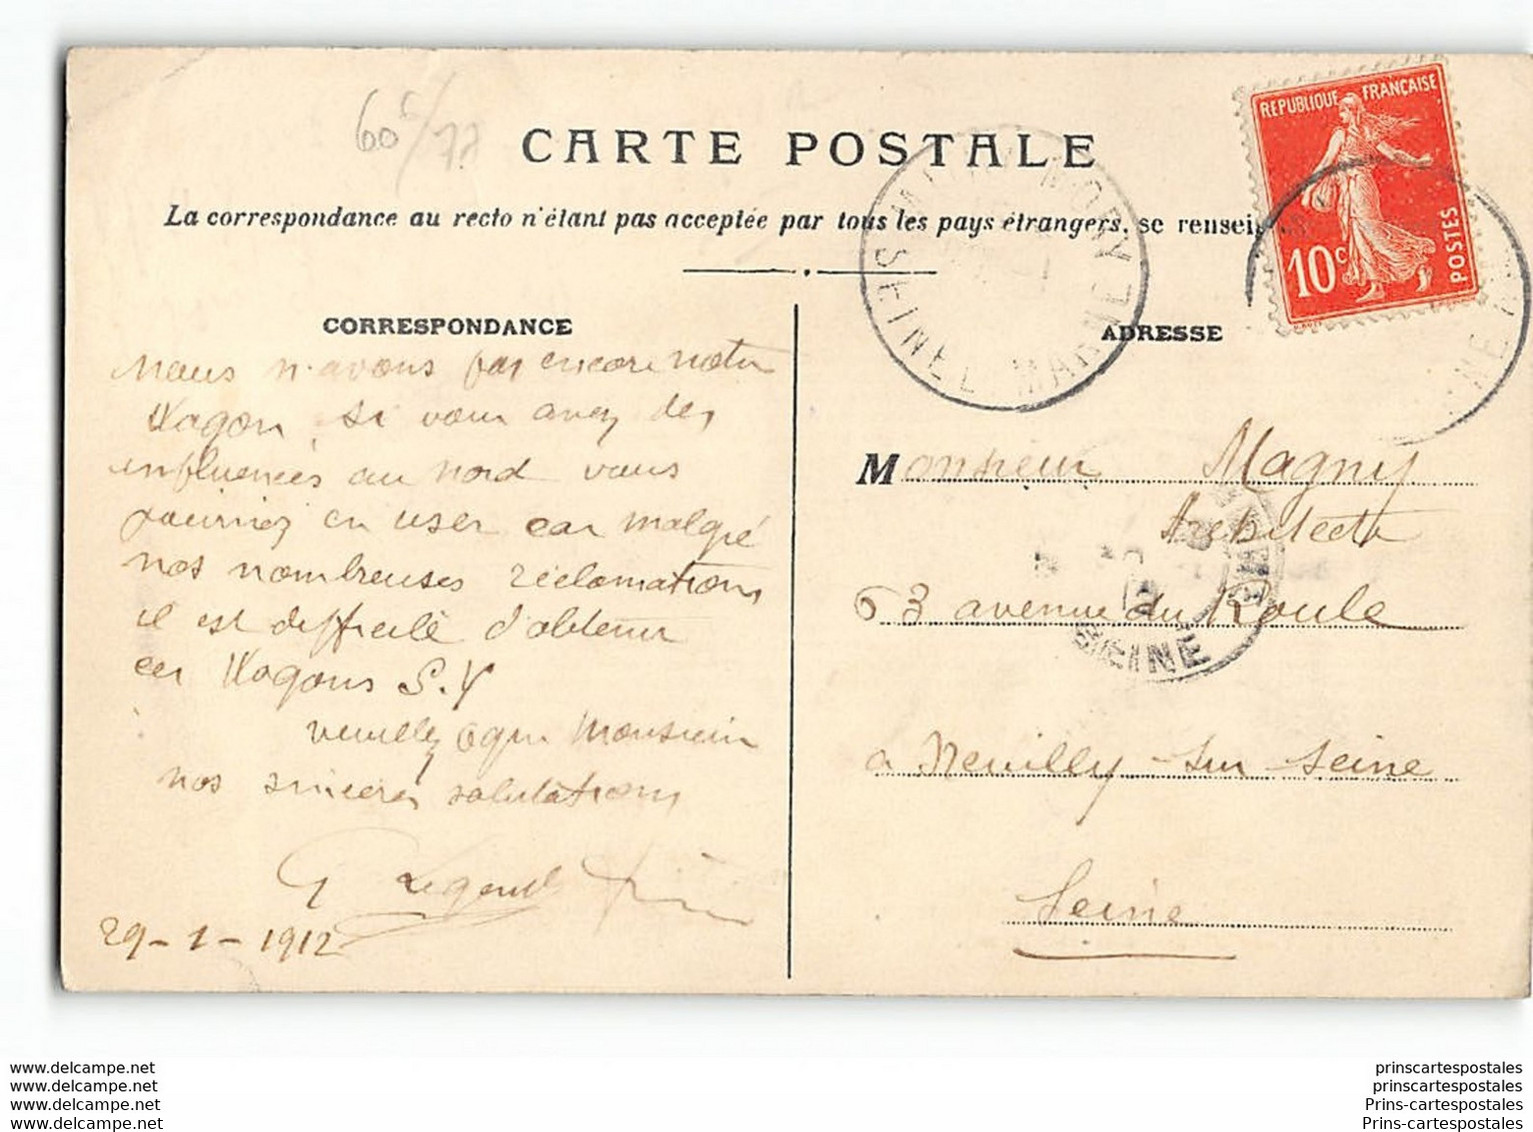 60 F/77
CARTE POSTALE
La correspondance au recto n'étant pas acceptée par tous les pays étrangers, se rensei
REPUBLIQUE FRANÇAISE
10c
POSTES
MORY
SEINE ET MARNE
CORRESPONDANCE
Nous n'avons pas encore notre
Wagon, si vous avez des
influences au nord vous
pourriez en user car malgré
nos nombreuses réclamations
il est difficile d'obtenir
ces Wagons S.Y
Veuillez agréer Monsieur
nos sincères salutations
G Legendre
29-1-1912
ADRESSE
Monsieur Magny
Architecte
63 avenue du Roule
à Neuilly-sur Seine
Seine
SEINE
www.delcampe.net
www.delcampe.net
www.delcampe.net
www.delcampe.net
prinscartespostales
prinscartespostales
Prins-cartespostales
Prins-cartespostales